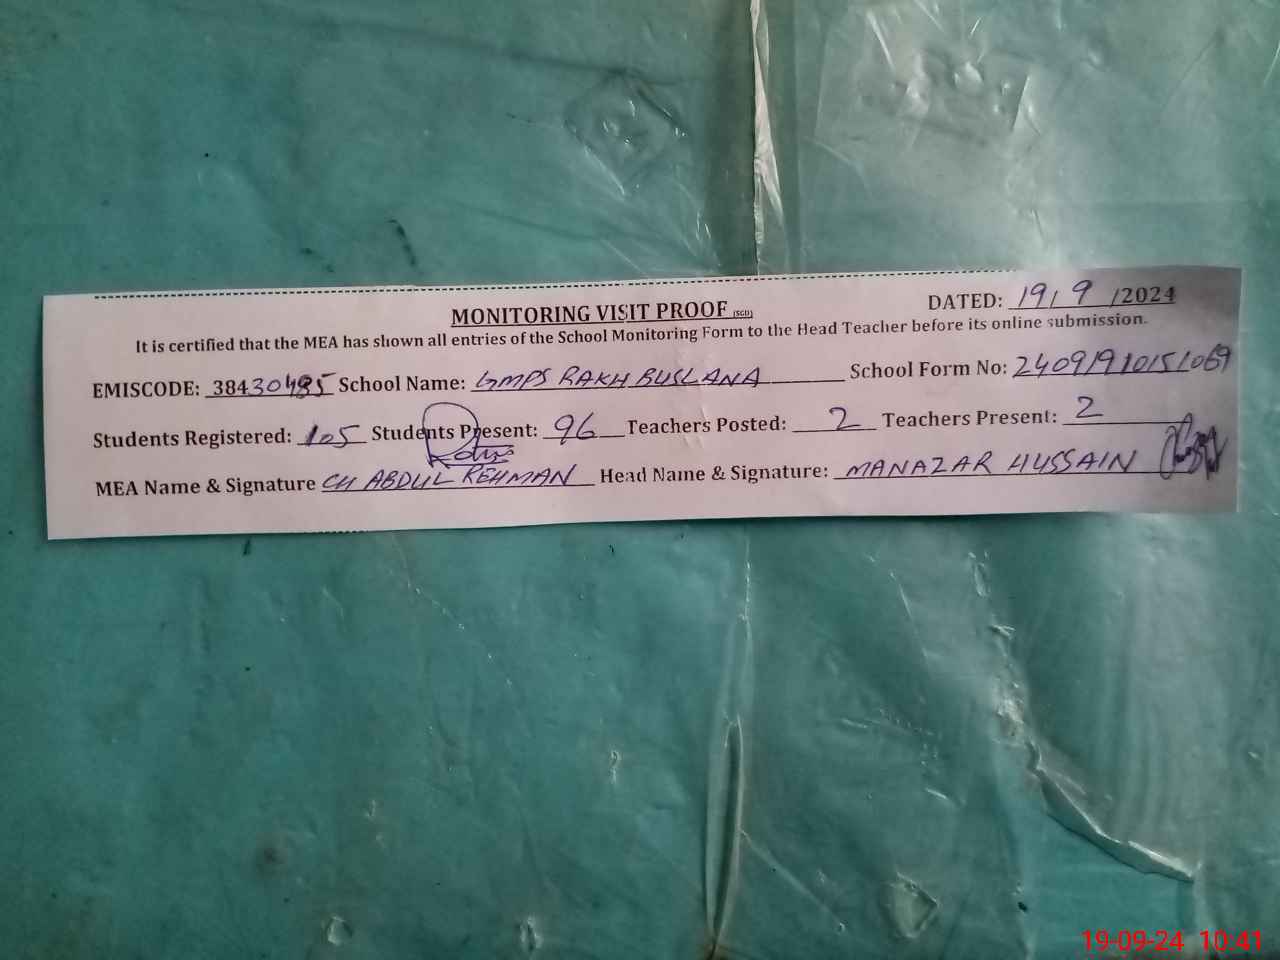 MONITORING VISIT PROOF (SGD) DATED: 19/9/2024
It is certified that the MEA has shown all entries of the School Monitoring Form to the Head Teacher before its online submission.
EMISCODE: 38430485 School Name: GMPS RAKH BUSLANA School Form No: 24091910151069
Students Registered: 105 Students Present: 96 Teachers Posted: 2 Teachers Present: 2
MEA Name & Signature CH ABDUL REHMAN Head Name & Signature: MANAZAR HUSSAIN
19-09-24 10:41